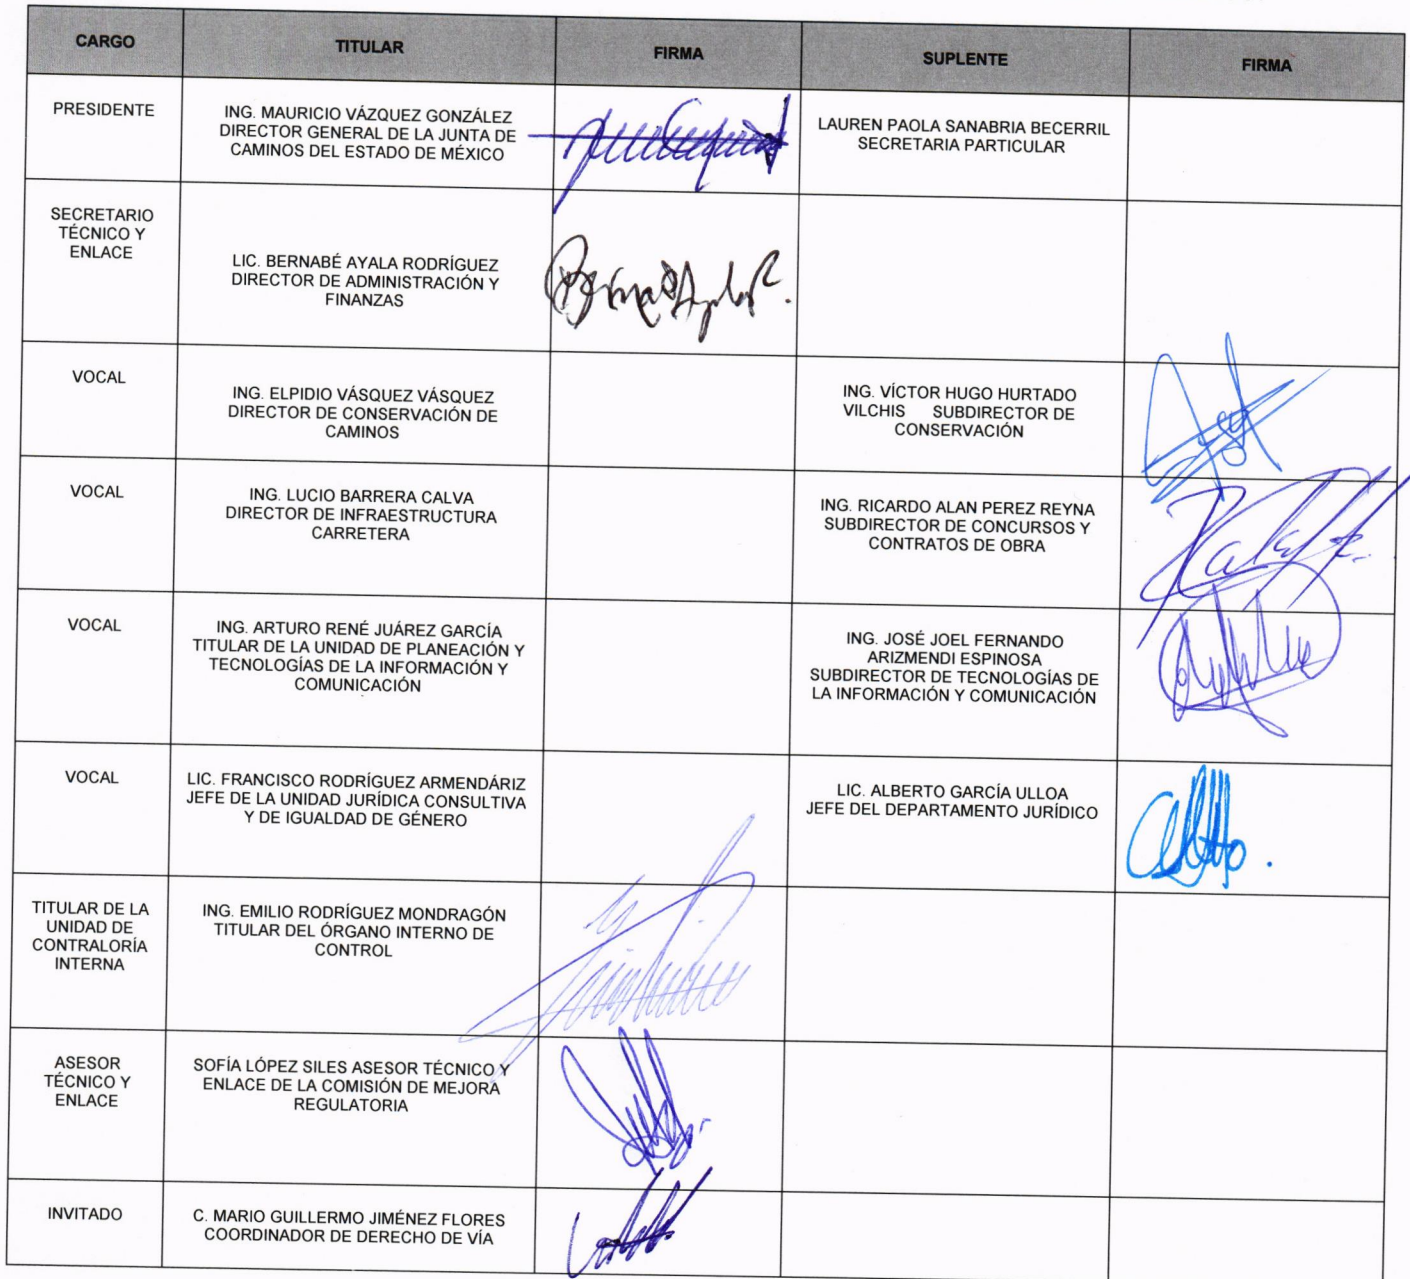 CARGO
TITULAR
FIRMA
SUPLENTE
FIRMA
PRESIDENTE
ING. MAURICIO VÁZQUEZ GONZÁLEZ
DIRECTOR GENERAL DE LA JUNTA DE
CAMINOS DEL ESTADO DE MÉXICO
LAUREN PAOLA SANABRIA BECERRIL
SECRETARIA PARTICULAR
SECRETARIO
TÉCNICO Y
ENLACE
LIC. BERNABÉ AYALA RODRÍGUEZ
DIRECTOR DE ADMINISTRACIÓN Y
FINANZAS
VOCAL
ING. ELPIDIO VÁSQUEZ VÁSQUEZ
DIRECTOR DE CONSERVACIÓN DE
CAMINOS
ING. VÍCTOR HUGO HURTADO
VILCHIS SUBDIRECTOR DE
CONSERVACIÓN
VOCAL
ING. LUCIO BARRERA CALVA
DIRECTOR DE INFRAESTRUCTURA
CARRETERA
ING. RICARDO ALAN PEREZ REYNA
SUBDIRECTOR DE CONCURSOS Y
CONTRATOS DE OBRA
VOCAL
ING. ARTURO RENÉ JUÁREZ GARCÍA
TITULAR DE LA UNIDAD DE PLANEACIÓN Y
TECNOLOGÍAS DE LA INFORMACIÓN Y
COMUNICACIÓN
ING. JOSÉ JOEL FERNANDO
ARIZMENDI ESPINOSA
SUBDIRECTOR DE TECNOLOGÍAS DE
LA INFORMACIÓN Y COMUNICACIÓN
VOCAL
LIC. FRANCISCO RODRÍGUEZ ARMENDÁRIZ
JEFE DE LA UNIDAD JURÍDICA CONSULTIVA
Y DE IGUALDAD DE GÉNERO
LIC. ALBERTO GARCÍA ULLOA
JEFE DEL DEPARTAMENTO JURÍDICO
TITULAR DE LA
UNIDAD DE
CONTRALORÍA
INTERNA
ING. EMILIO RODRÍGUEZ MONDRAGÓN
TITULAR DEL ÓRGANO INTERNO DE
CONTROL
ASESOR
TÉCNICO Y
ENLACE
SOFÍA LÓPEZ SILES ASESOR TÉCNICO Y
ENLACE DE LA COMISIÓN DE MEJORA
REGULATORIA
INVITADO
C. MARIO GUILLERMO JIMÉNEZ FLORES
COORDINADOR DE DERECHO DE VÍA